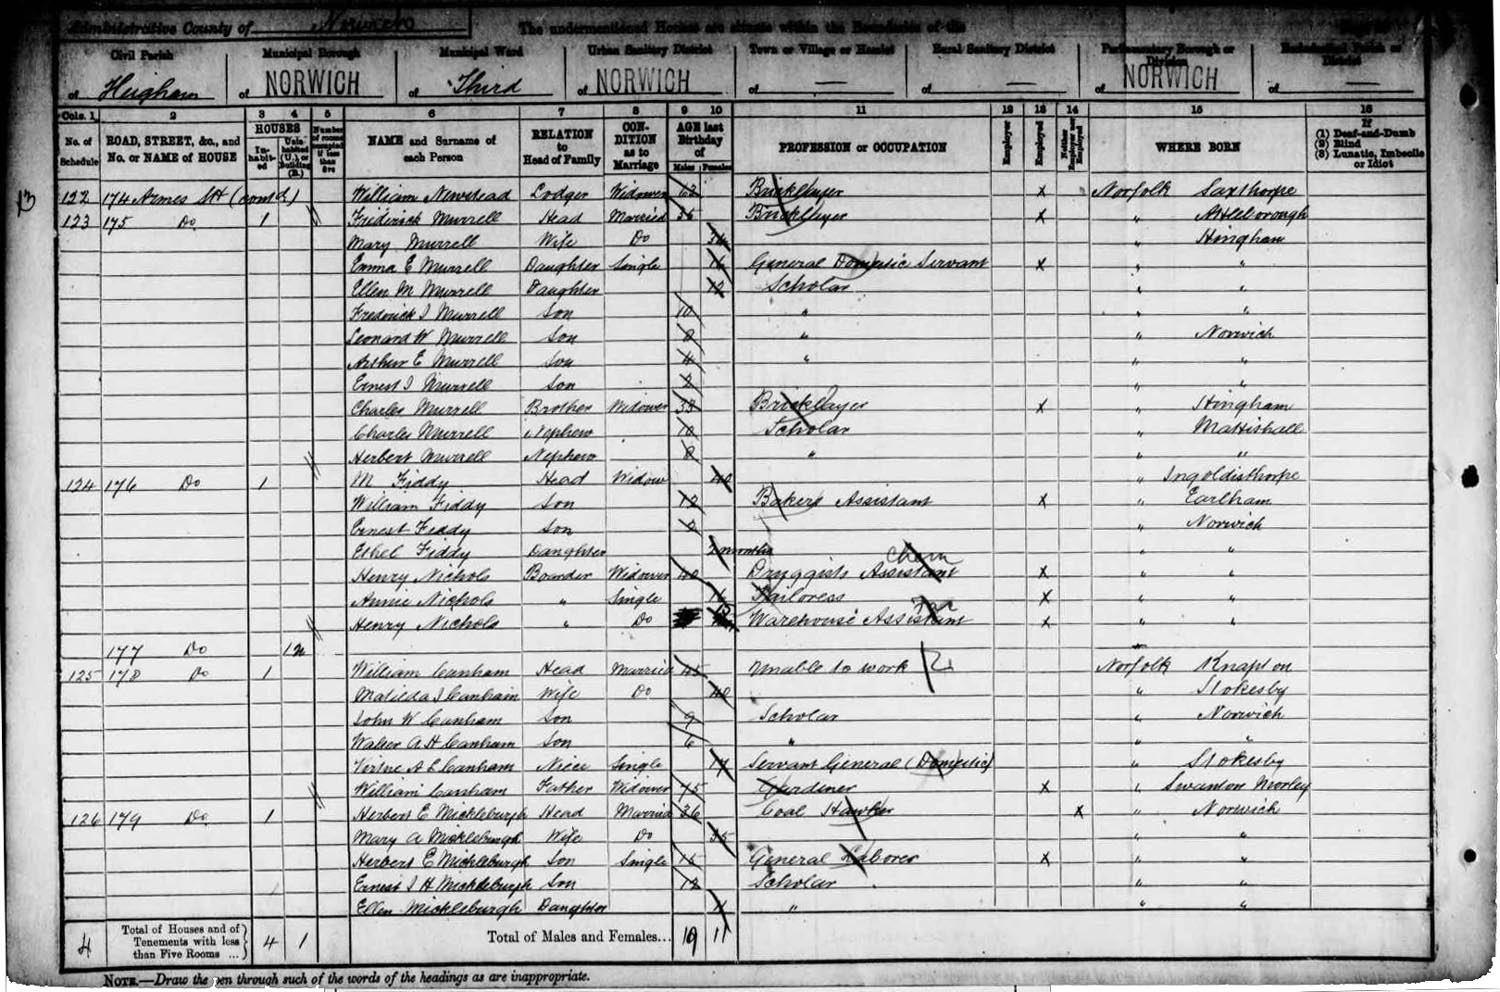 Administrative County of Norwich The undermentioned Houses are situate within the Boundaries of the
Civil Parish Municipal Borough Municipal Ward Urban Sanitary District Town or Village or Hamlet Rural Sanitary District Parliamentary Borough or Division Ecclesiastical Parish or District
of Heigham of NORWICH of Third of NORWICH of — of — of NORWICH of
Cols. 1 2 3 4 5 6 7 8 9 10 11 12 13 14 15 16
No. of Schedule ROAD, STREET, &c., and No. or NAME of HOUSE HOUSES Inhabited Uninhabited (U.), or Building (B.) Number of rooms occupied if less than five NAME and Surname of each Person RELATION to Head of Family CONDITION as to Marriage AGE last Birthday of Males Females PROFESSION or OCCUPATION Employer Employed Neither Employer nor Employed WHERE BORN If (1) Deaf-and-Dumb (2) Blind (3) Lunatic, Imbecile or Idiot
13
122 174 Armes St (contd) William Newstead Lodger Widower 62 Bricklayer x Norfolk Saxthorpe
123 175 Do 1 Frederick Murrell Head Married 36 Bricklayer x " Attleborough
Mary Murrell Wife Do " Hingham
Emma E Murrell Daughter Single 16 General Domestic Servant x " "
Ellen M Murrell Daughter 12 Scholar " "
Frederick J Murrell Son 10 " " "
Leonard W Murrell Son 8 " " Norwich
Arthur E Murrell Son 4 " " "
Ernest J Murrell Son 2 " "
Charles Murrell Brother Widower 33 Bricklayer x " Hingham
Charles Murrell Nephew 10 Scholar " Mattishall
Herbert Murrell Nephew 8 " " "
124 176 Do 1 M Fiddy Head Widow 40 " Ingoldisthorpe
William Fiddy Son 12 Bakers Assistant x " Earlham
Ernest Fiddy Son 2 " Norwich
Ethel Fiddy Daughter 2 months " "
Chem
Henry Nichols Boarder Widower 40 Druggists Assistant x " "
Annie Nichols " Single 16 Tailoress x " "
Henry Nichols " Do Warehouse Assistant x " "
177 Do 1u
125 178 Do 1 William Canham Head Married 45 Unable to work Norfolk Knapton
Matilda J Canham Wife Do 40 " Stokesby
John W Canham Son 9 Scholar " Norwich
Walter A H Canham Son 6 " " "
Virtue A E Canham Niece Single 17 Servant General (Domestic) " Stokesby
William Canham Father Widower 75 Gardiner x " Swanton Morley
126 179 Do 1 Herbert E Mickleburgh Head Married 36 Coal Hawker x " Norwich
Mary A Mickleburgh Wife Do 35 " "
Herbert E Mickleburgh Son Single 15 General Laborer x " "
Ernest J H Mickleburgh Son 12 Scholar " "
Ellen Mickleburgh Daughter " " "
4 Total of Houses and of Tenements with less than Five Rooms ... 4 1 Total of Males and Females... 19 11
NOTE.—Draw the pen through such of the words of the headings as are inappropriate.